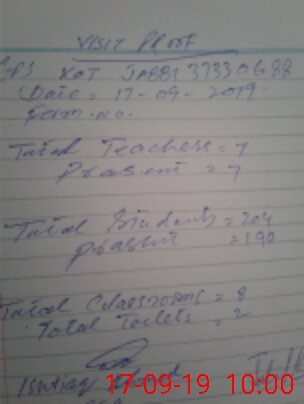 VISIT PROOF
GPS KOT JABBI 37330688
Date = 17-09-2019
Form-No.
Total Teachess = 7
Prasent = 7
Total Students = 204
prasent = 190
Total Classrooms = 8
Total Toilets = 2
Ishtiaq
17-09-19 10:00